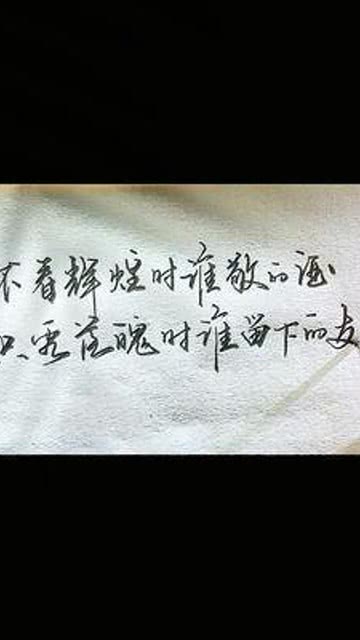 不看辉煌时谁敬的酒
只看落魄时谁留下的友